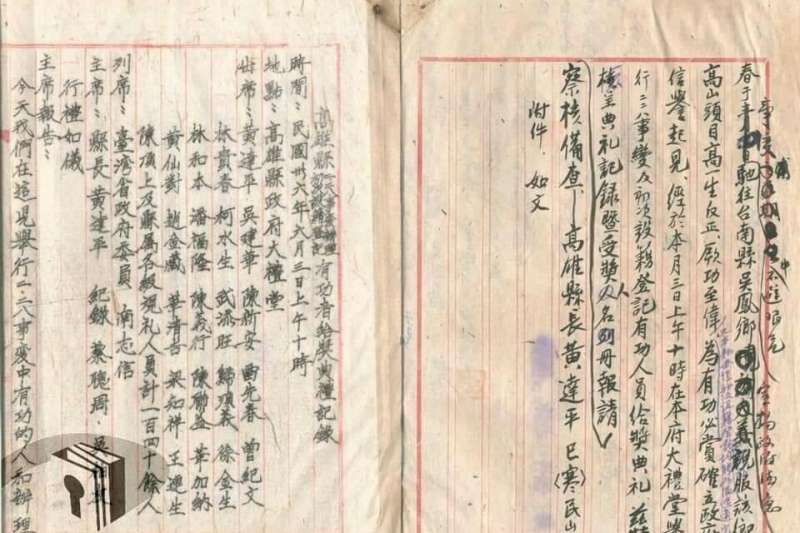 不避艱危
馳往台南縣吳鳳鄉 說服該鄉
高山頭目高一生反正、厥功至偉、為有功必賞確立政府
信譽起見、經於本月三日上午十時在本府大禮堂舉
行二二八事變及初次設籍登記有功人員給獎典禮、茲
檢呈典禮記錄暨受獎人名冊報請
察核備查、高雄縣長黃達平 巳(寒)民山
附件 如文
高雄縣 有功者給獎典禮記錄
時間：民國卅六年六月三日上午十時
地點：高雄縣政府大禮堂
出席：黃達平 吳建華 陳新安 曾紀文
林貴春 柯水生 武添旺 歸順義 徐金生
林和本 潘福隆 陳義行 陳聯益 華加納
黃仙對 趙金葳 華清吉 梁知祥 王連生
陳項上及縣屬各級觀禮人員計一百四十餘人
列席：臺灣省政府委員 南志信
主席：縣長 黃達平 紀錄 蔡聰明
行禮如儀
主席報告：
今天我們在這兒舉行二二八事變中有功的人和辦理